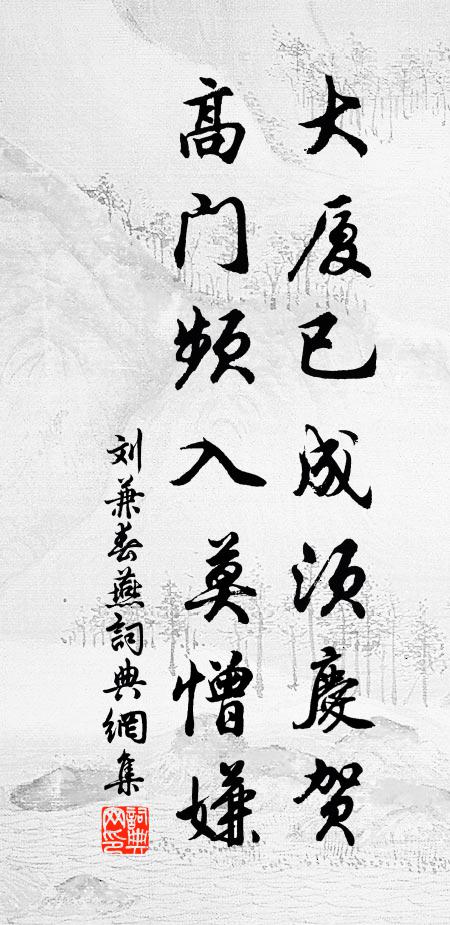 大厦已成须慶贺
高门频入莫憎嫌
刘兼春燕詞典網集
詞典网印